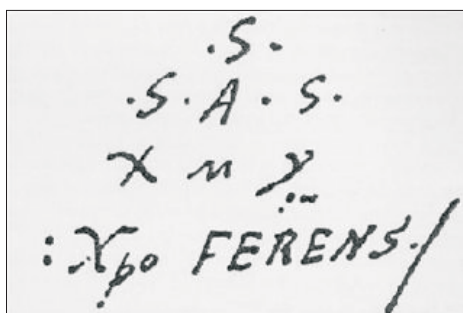 .S.
.S.A.S.
X M Y
:Xpo FERENS./